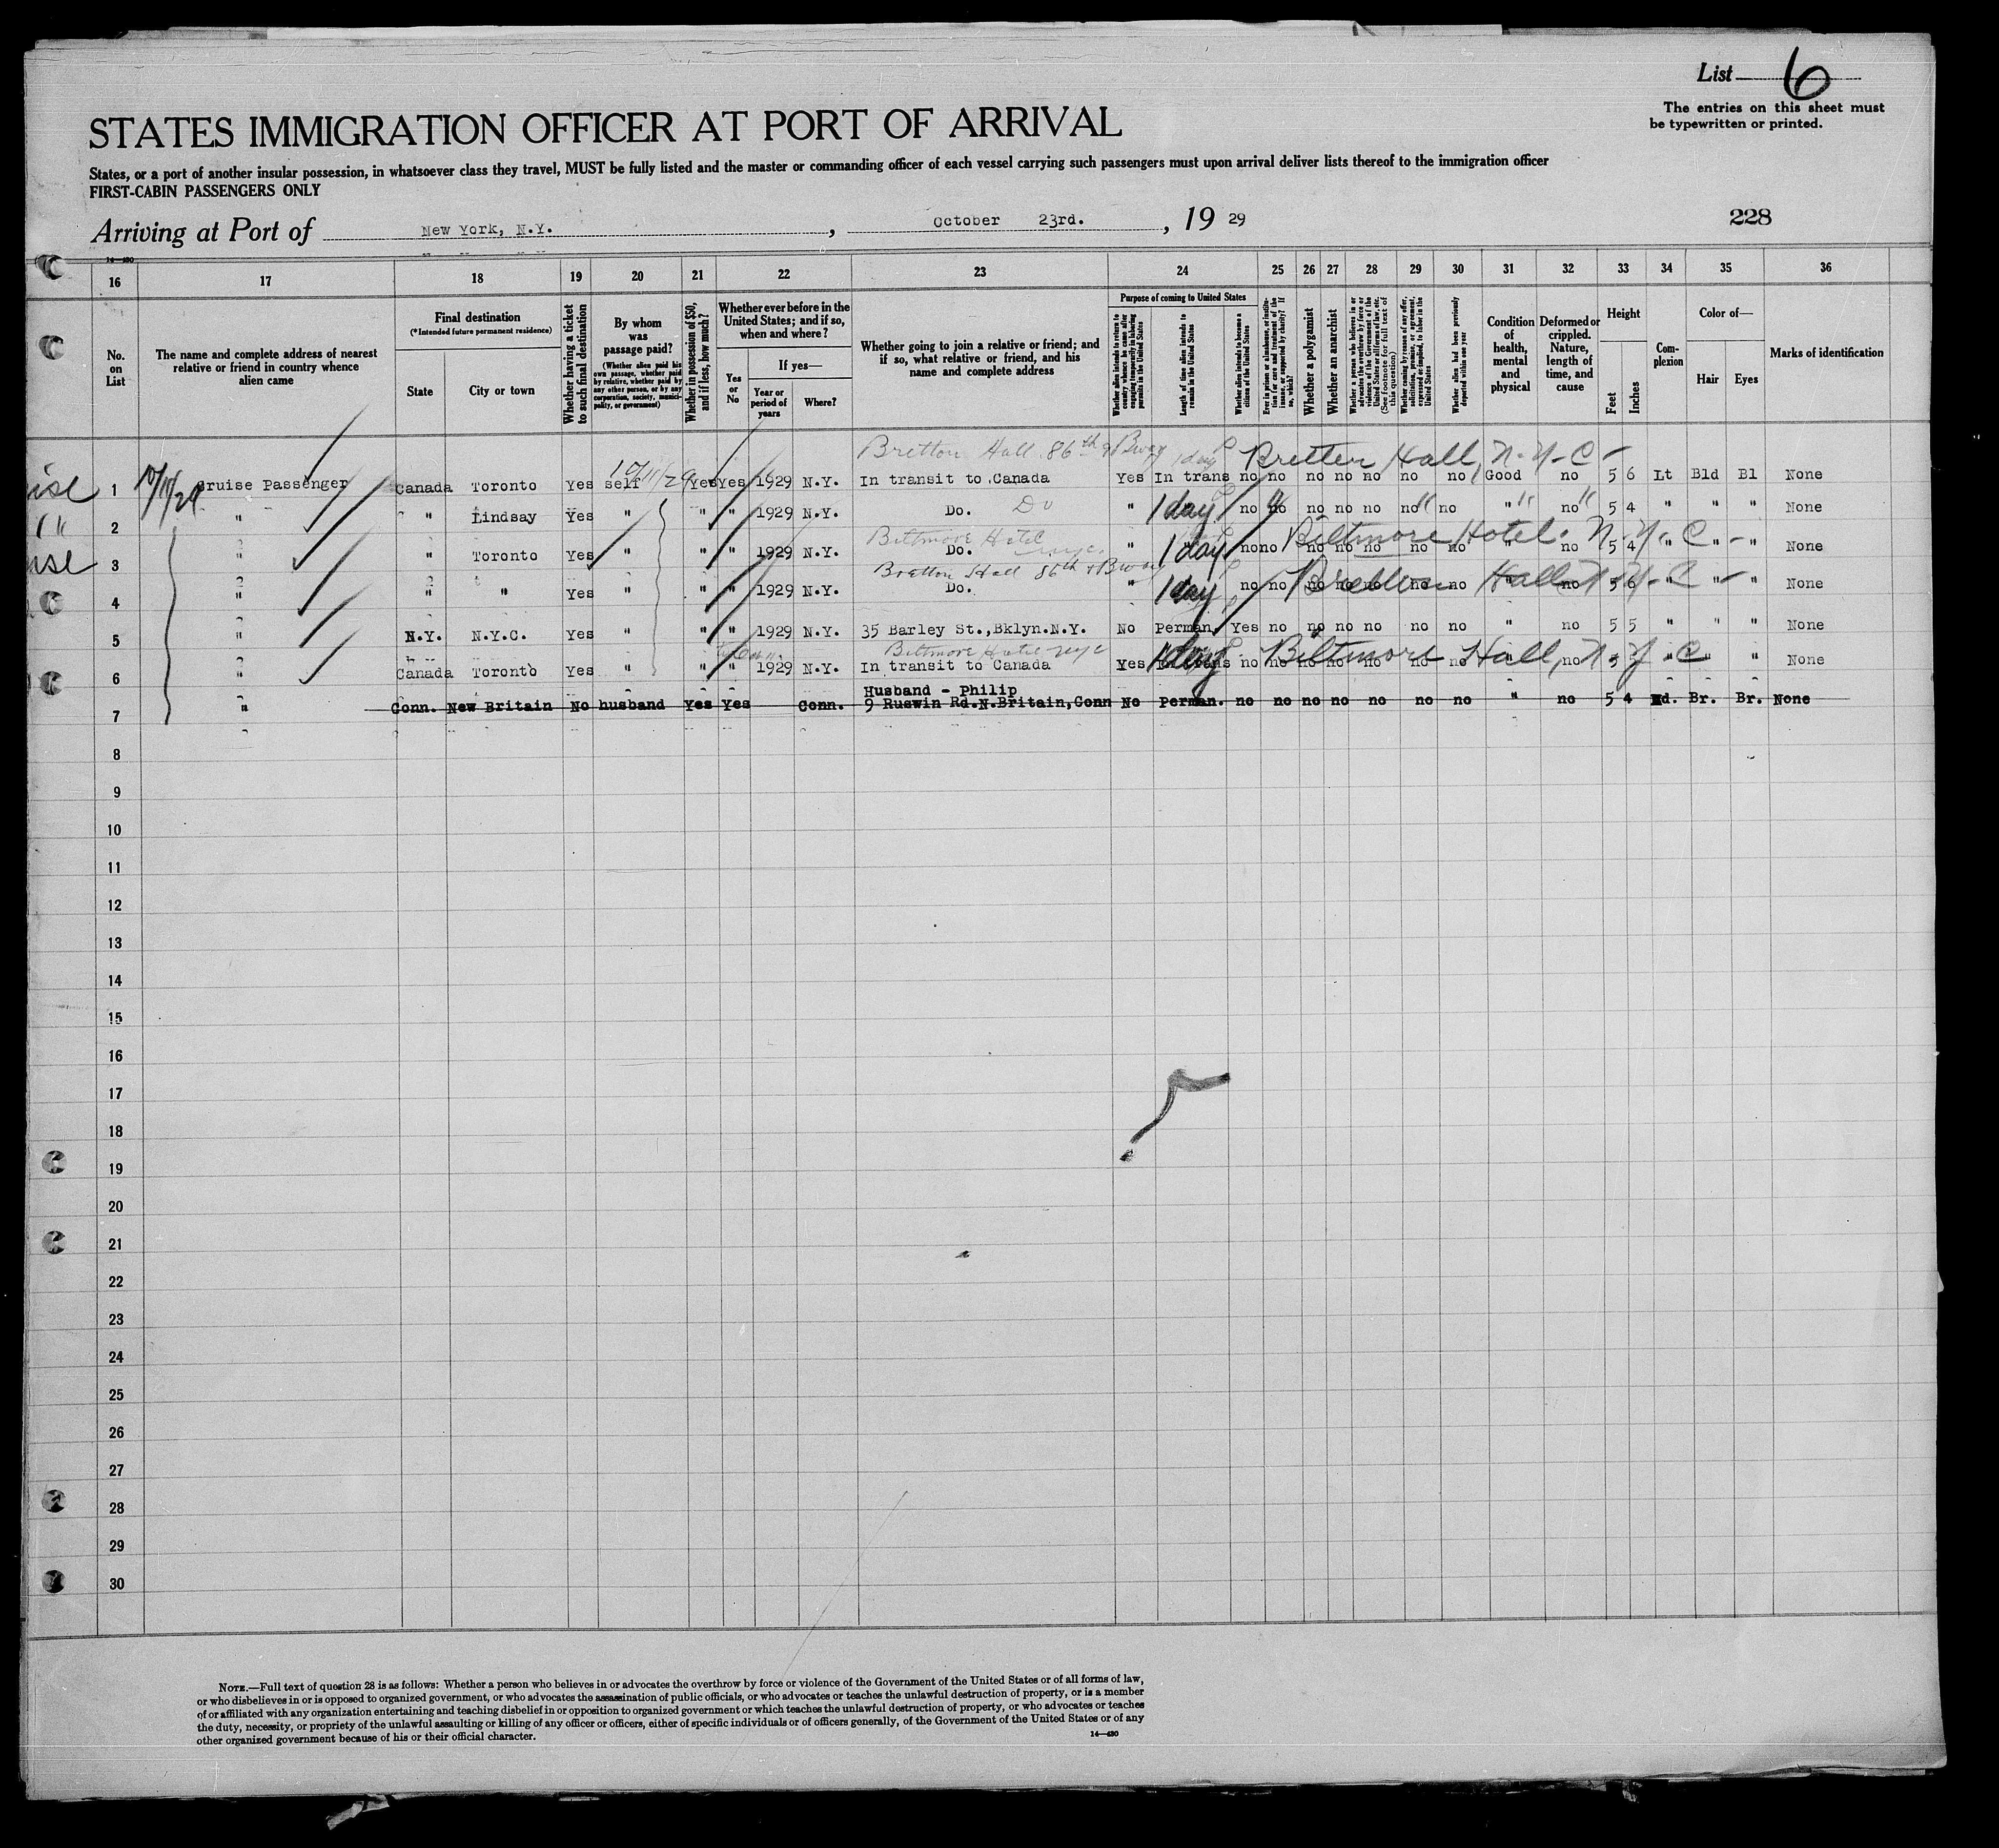 List 6
The entries on this sheet must
be typewritten or printed.
STATES IMMIGRATION OFFICER AT PORT OF ARRIVAL
States, or a port of another insular possession, in whatsoever class they travel, MUST be fully listed and the master or commanding officer of each vessel carrying such passengers must upon arrival deliver lists thereof to the immigration officer
FIRST-CABIN PASSENGERS ONLY
Arriving at Port of New York, N.Y., October 23rd., 19 29
228
14—430
16 17 18 19 20 21 22 23 24 25 26 27 28 29 30 31 32 33 34 35 36
No. on List
The name and complete address of nearest relative or friend in country whence alien came
Final destination
(*Intended future permanent residence)
State
City or town
Whether having a ticket to such final destination
By whom was passage paid?
(Whether alien paid his own passage, whether paid by relative, whether paid by any other person, or by any corporation, society, municipality, or government)
Whether in possession of $50, and if less, how much?
Whether ever before in the United States; and if so, when and where?
Yes or No
If yes—
Year or period of years
Where?
Whether going to join a relative or friend; and if so, what relative or friend, and his name and complete address
Purpose of coming to United States
Whether alien intends to return to country whence he came after engaging temporarily in laboring pursuits in the United States
Length of time alien intends to remain in the United States
Whether alien intends to become a citizen of the United States
Ever in prison or almshouse, or institution for care and treatment of the insane, or supported by charity? If so, which?
Whether a polygamist
Whether an anarchist
Whether a person who believes in or advocates the overthrow by force or violence of the Government of the United States or all forms of law, etc. (See footnote for full text of this question)
Whether coming by reason of any offer, solicitation, promise, or agreement, expressed or implied, to labor in the United States
Whether alien had been previously deported within one year
Condition of health, mental and physical
Deformed or crippled. Nature, length of time, and cause
Height
Feet
Inches
Complexion
Color of—
Hair
Eyes
Marks of identification
Bretton Hall 86th & Bway 1 day Bretten Hall, N.Y-C-
10/11/29 10/11/29
1 Cruise Passenger Canada Toronto Yes self Yes Yes 1929 N.Y. In transit to Canada Yes In trans no no no no no no no Good no 5 6 Lt Bld Bl None
2 " " Lindsay Yes " " " 1929 N.Y. Do. Do " 1 day no no no no no no no " no 5 4 " " " None
Biltmore Hotel NYC. Biltmore Hotel. N.Y.C-
3 " " Toronto Yes " " " 1929 N.Y. Do. " 1 day no no no no no no no " no 5 4 " " " None
Bretton Hall 86th & Bway Bretten Hall N.Y-C-
4 " " " Yes " " " 1929 N.Y. Do. " 1 day no no no no no no no " no 5 6 " " " None
5 " N.Y. N.Y.C. Yes " " " 1929 N.Y. 35 Barley St.,Bklyn.N.Y. No Perman. Yes no no no no no no " no 5 5 " " " None
Biltmore Hotel NYC Biltmore Hall, N.Y.C
6 " Canada Toronto Yes " " " 1929 N.Y. In transit to Canada Yes 1 day no no no no no no no " no 5 " " " None
Husband - Philip
7 " Conn. New Britain No husband Yes Yes Conn. 9 Ruswin Rd.N.Britain,Conn No Perman. no no no no no no no " no 5 4 Md. Br. Br. None
8
9
10
11
12
13
14
15
16
17
18
19
20
21
22
23
24
25
26
27
28
29
30
NOTE.—Full text of question 28 is as follows: Whether a person who believes in or advocates the overthrow by force or violence of the Government of the United States or of all forms of law,
or who disbelieves in or is opposed to organized government, or who advocates the assassination of public officials, or who advocates or teaches the unlawful destruction of property, or is a member
of or affiliated with any organization entertaining and teaching disbelief in or opposition to organized government or which teaches the unlawful destruction of property, or who advocates or teaches
the duty, necessity, or propriety of the unlawful assaulting or killing of any officer or officers, either of specific individuals or of officers generally, of the Government of the United States or of any
other organized government because of his or their official character.
14—430